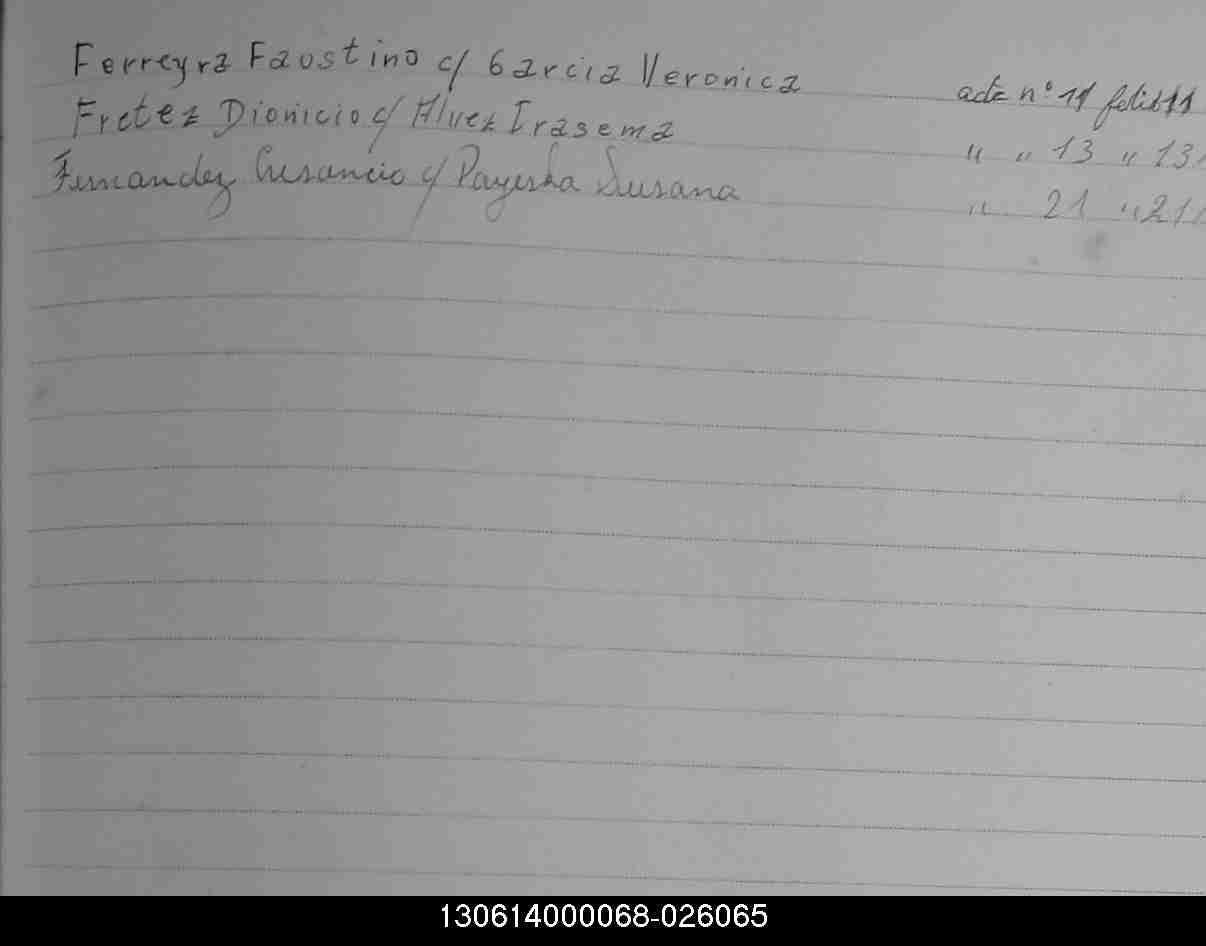 Ferreyra Faustino c/ Garcia Veronica acta nº 11 folio 11
Fretez Dionicio c/ Alvez Irasema " " 13 " 13
Fernandez Cresancio c/ Susana " 21 " 21
130614000068-026065